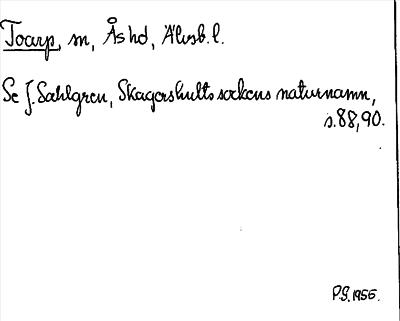 Toarp, sn, Ås hd, Älvsb. l.
Se J. Sahlgren, Skagershults sockens naturnamn,
s. 88, 90.
P.G. 1956.